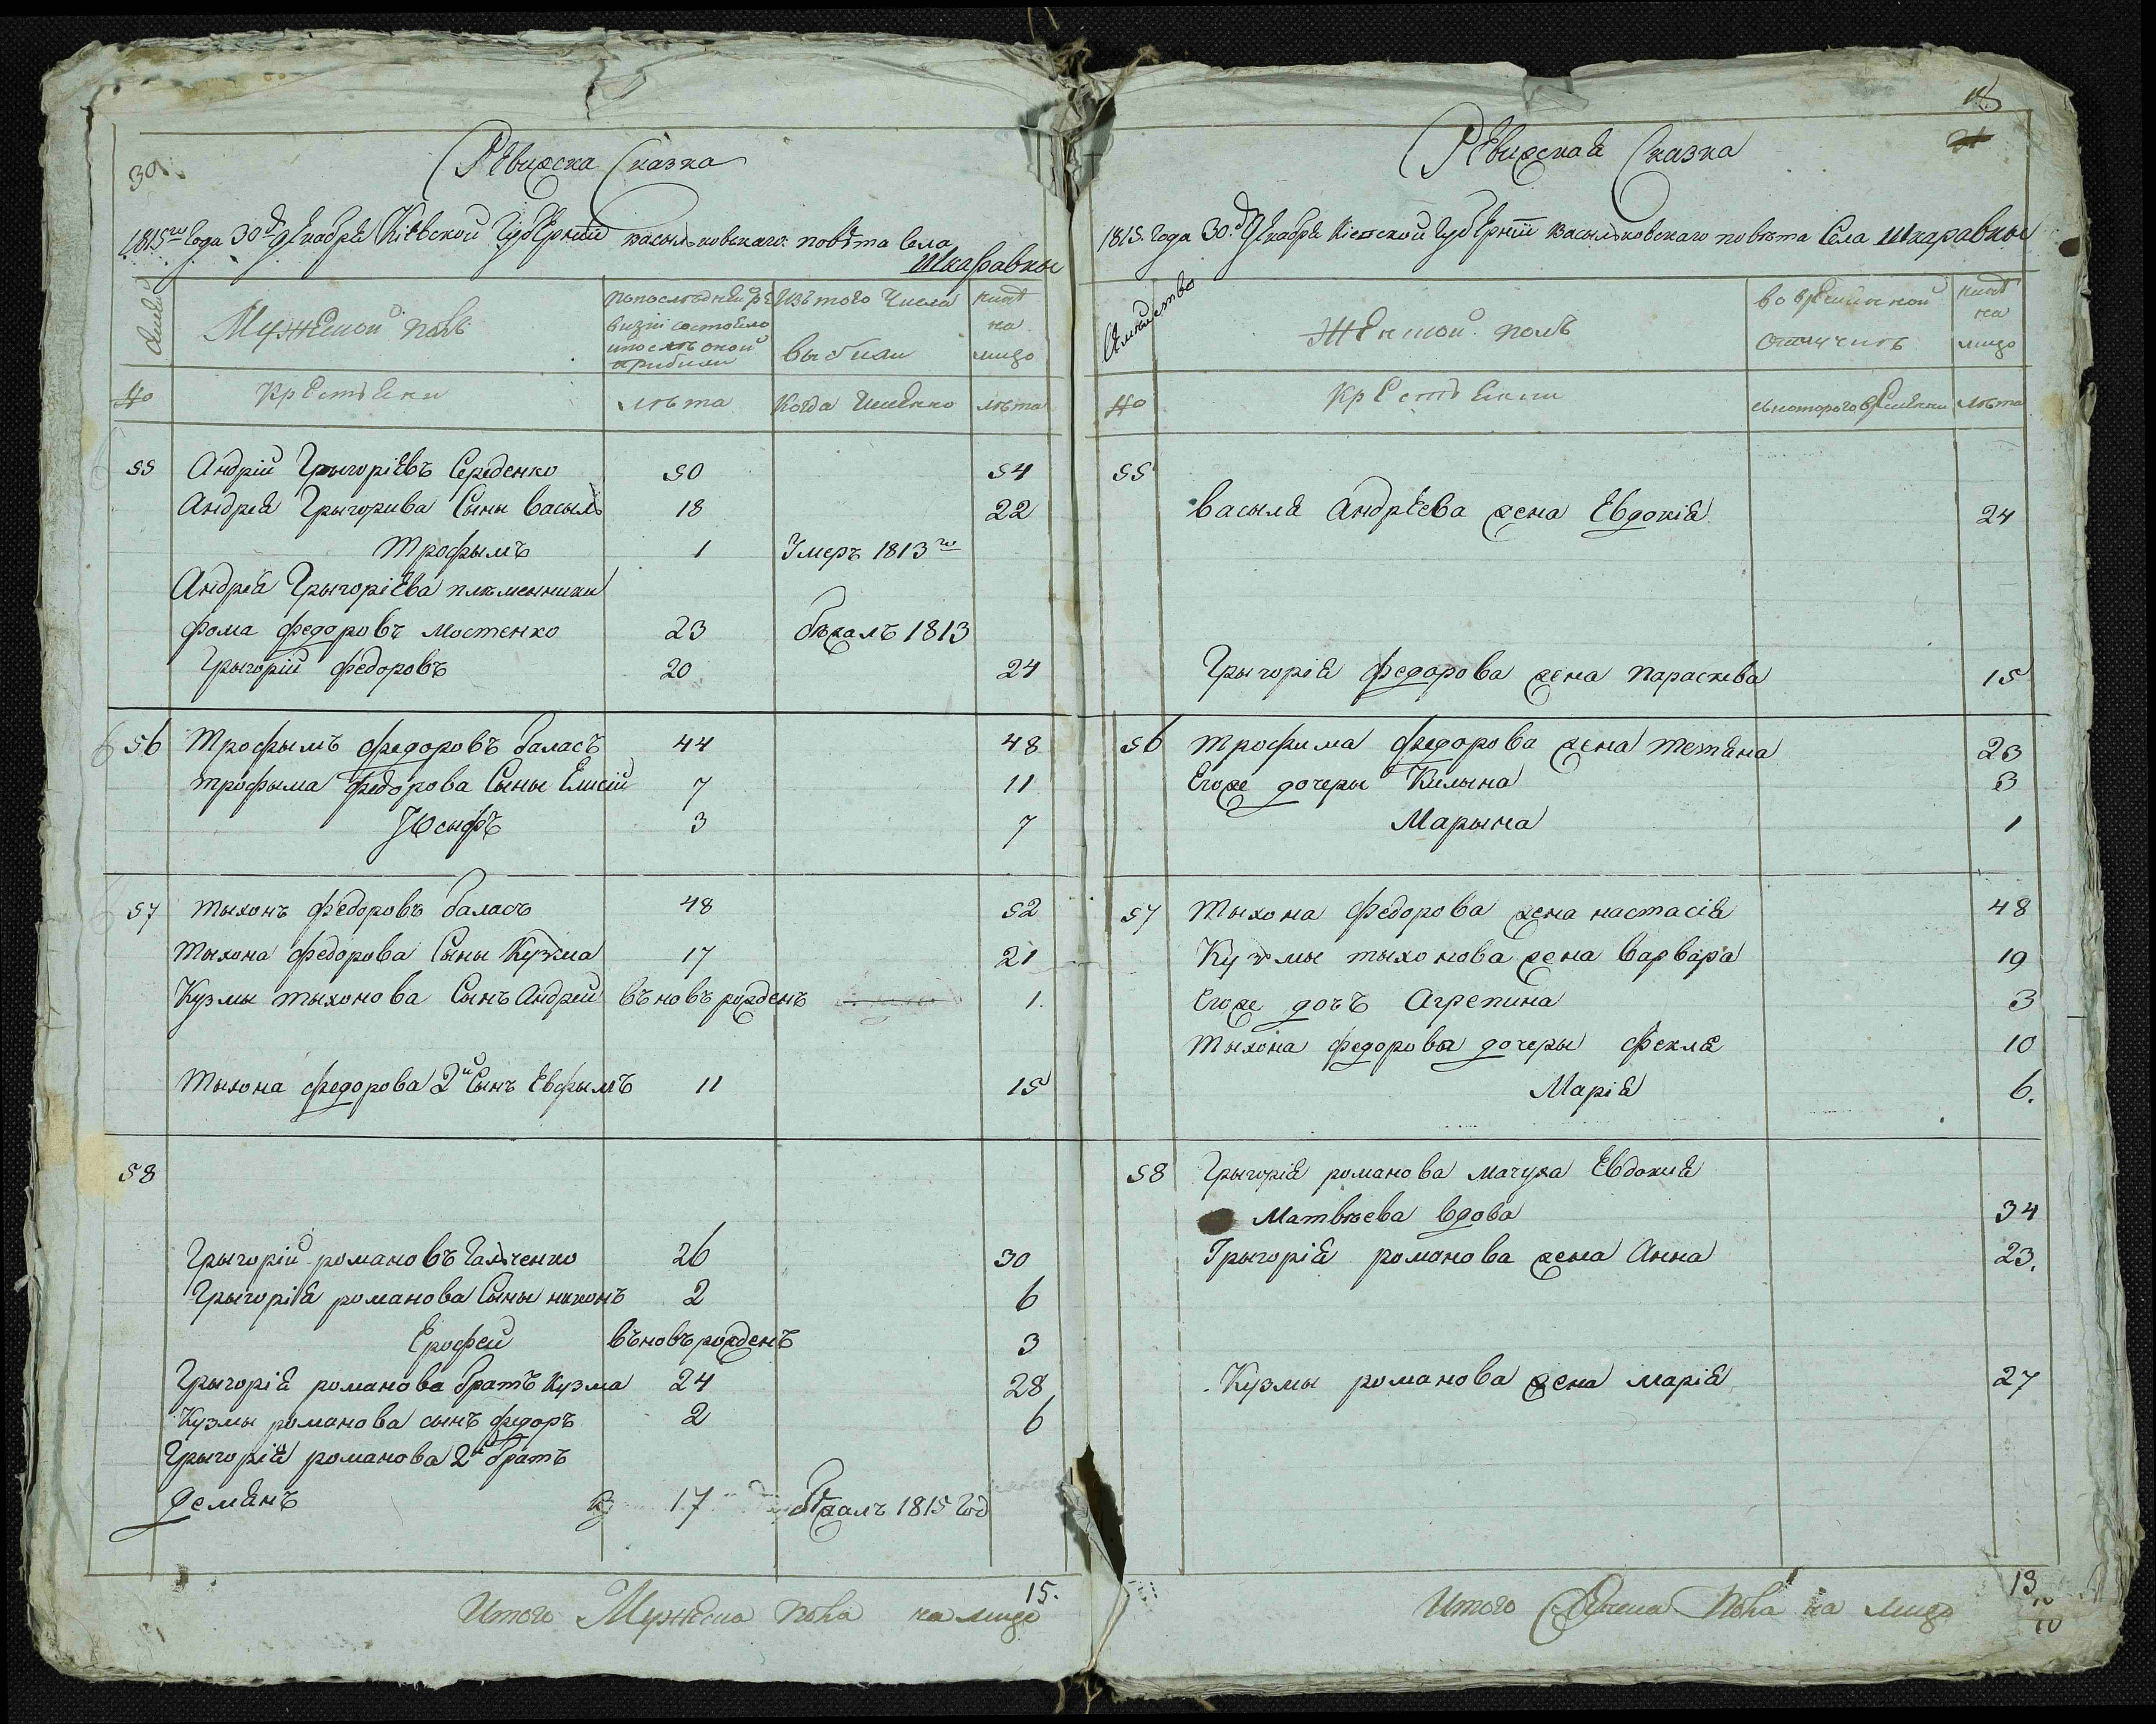 30.
Ревизска Сказка
1815го Года 30д Декабря Кіевской Губерніи васильковскаго повѣта Села
Шкаравки
Мужской полъ
По последней ре
визіи состояло
и после оной
прибыли
Изъ того Числа
выбыли
ныне
на
лицо
№
Крестьяни
лѣта
Когда Именно
лѣта
55 Андрій Грыгоріевъ Середенко 50 54
Андрея Грыгорива Сыны василь 18 22
Трофымъ 1 Умеръ 1813го
Андрея Грыгоріева племенники
фома федоровъ мостенко 23 бежалъ 1813
Грыгорій федоровъ 20 24
56 Трофымъ федоровъ баласъ 44 48
трофыма федорова Сыны Елисій 7 11
Юсыфъ 3 7
57 Тыхонъ федоровъ баласъ 48 52
Тыхона федорова Сыны Кузма 17 21
Кузмы тыхонова Сынъ Андрей въновъ рожденъ 1.
Тыхона федорова 2й Сынъ Евфымъ 11 15
58
Грыгорій романовъ Галченко 26 30
Грыгорія романова Сыны никонъ 2 6
Ерофей въновъ рожденъ 3
Грыгорія романова братъ Кузма 24 28
Кузмы романова сынъ федоръ 2 6
Грыгорія романова 2й братъ
Демянъ 17 бежалъ 1815 Год
Итого Мужеска пола на лицо 15.
18
21
Ревизская Сказка
1815. Года 30.д Декабря Кіевской Губерніи васильковскаго повѣта Села Шкаравки
Семейство
Женской полъ
во временной
отлучке
ныне
на
лицо
№
Крестьянки
съ которого времени
лѣта
55
василя Андреева жена Евдокія 24
Грыгорія федорова жена параскева 15
56 Трофима федорова жена тетяна 23
Егоже дочеры Килына 3
Марына 1
57 Тыхона федорова жена настасія 48
Кузмы тыхонова жена варвара 19
Егоже дочъ Агрепина 3
Тыхона федорова дочеры фекла 10
Марія 6.
58 Грыгорія романова мачуха Евдокия
Матвѣева вдова 34
Грыгорія романова жена Анна 23.
Кузмы романова жена марія 27
Итого Женска пола на лицо 13
10